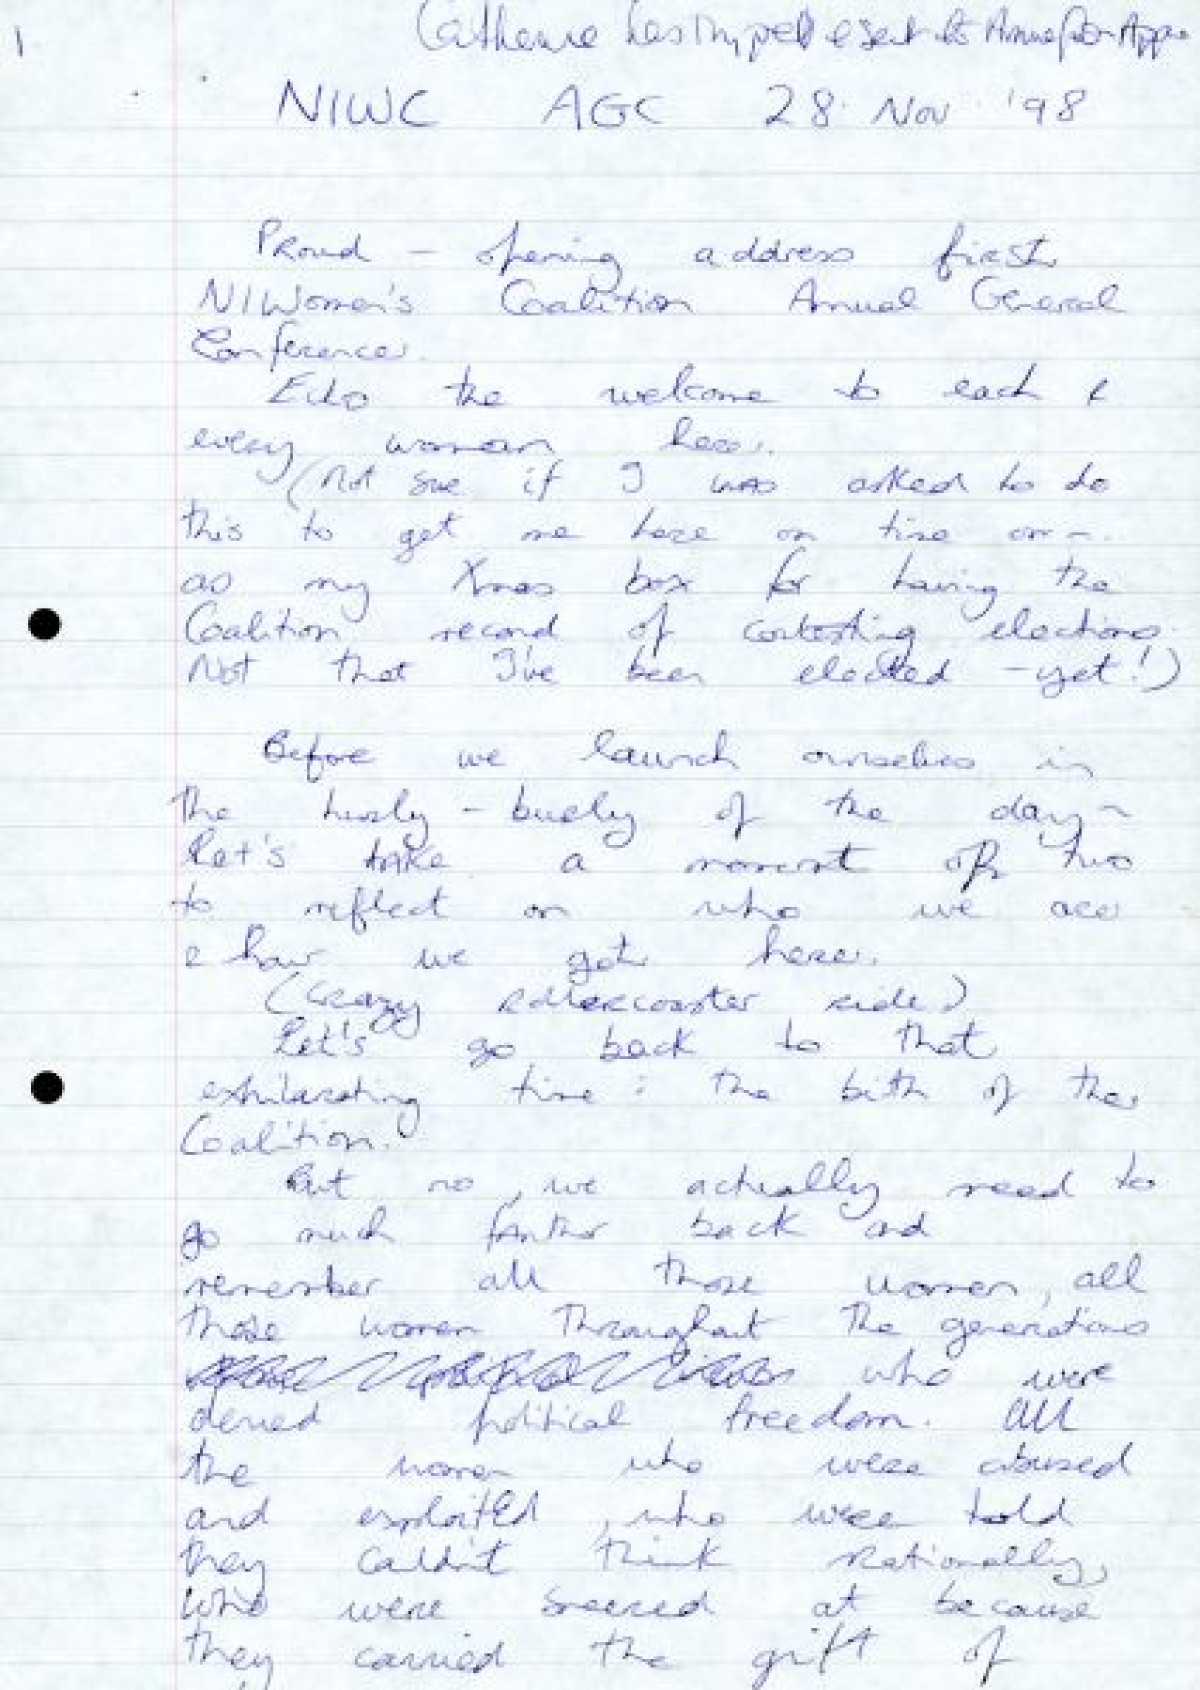 1
Catherine has typed & sent to Anne for Appr
NIWC AGC 28 Nov '98
Proud - opening address first
NIWomen's Coalition Annual General
Conference.
Echo the welcome to each &
every woman here.
(Not sure if I was asked to do
this to get me here on time or -
as my Xmas box for having the
Coalition record of contesting elections.
Not that I've been elected - yet!)
Before we launch ourselves in
the hurly-burly of the day -
let's take a moment or two
to reflect on who we are
& how we got here.
(Crazy rollercoaster ride)
Let's go back to that
exhilarating time: the birth of the
Coalition.
But no, we actually need to
go much farther back and
remember all those women, all
those women throughout the generations
who were
denied political freedom. All
the women who were abused
and exploited, who were told
they couldn't think rationally,
who were sneered at because
they carried the gift of